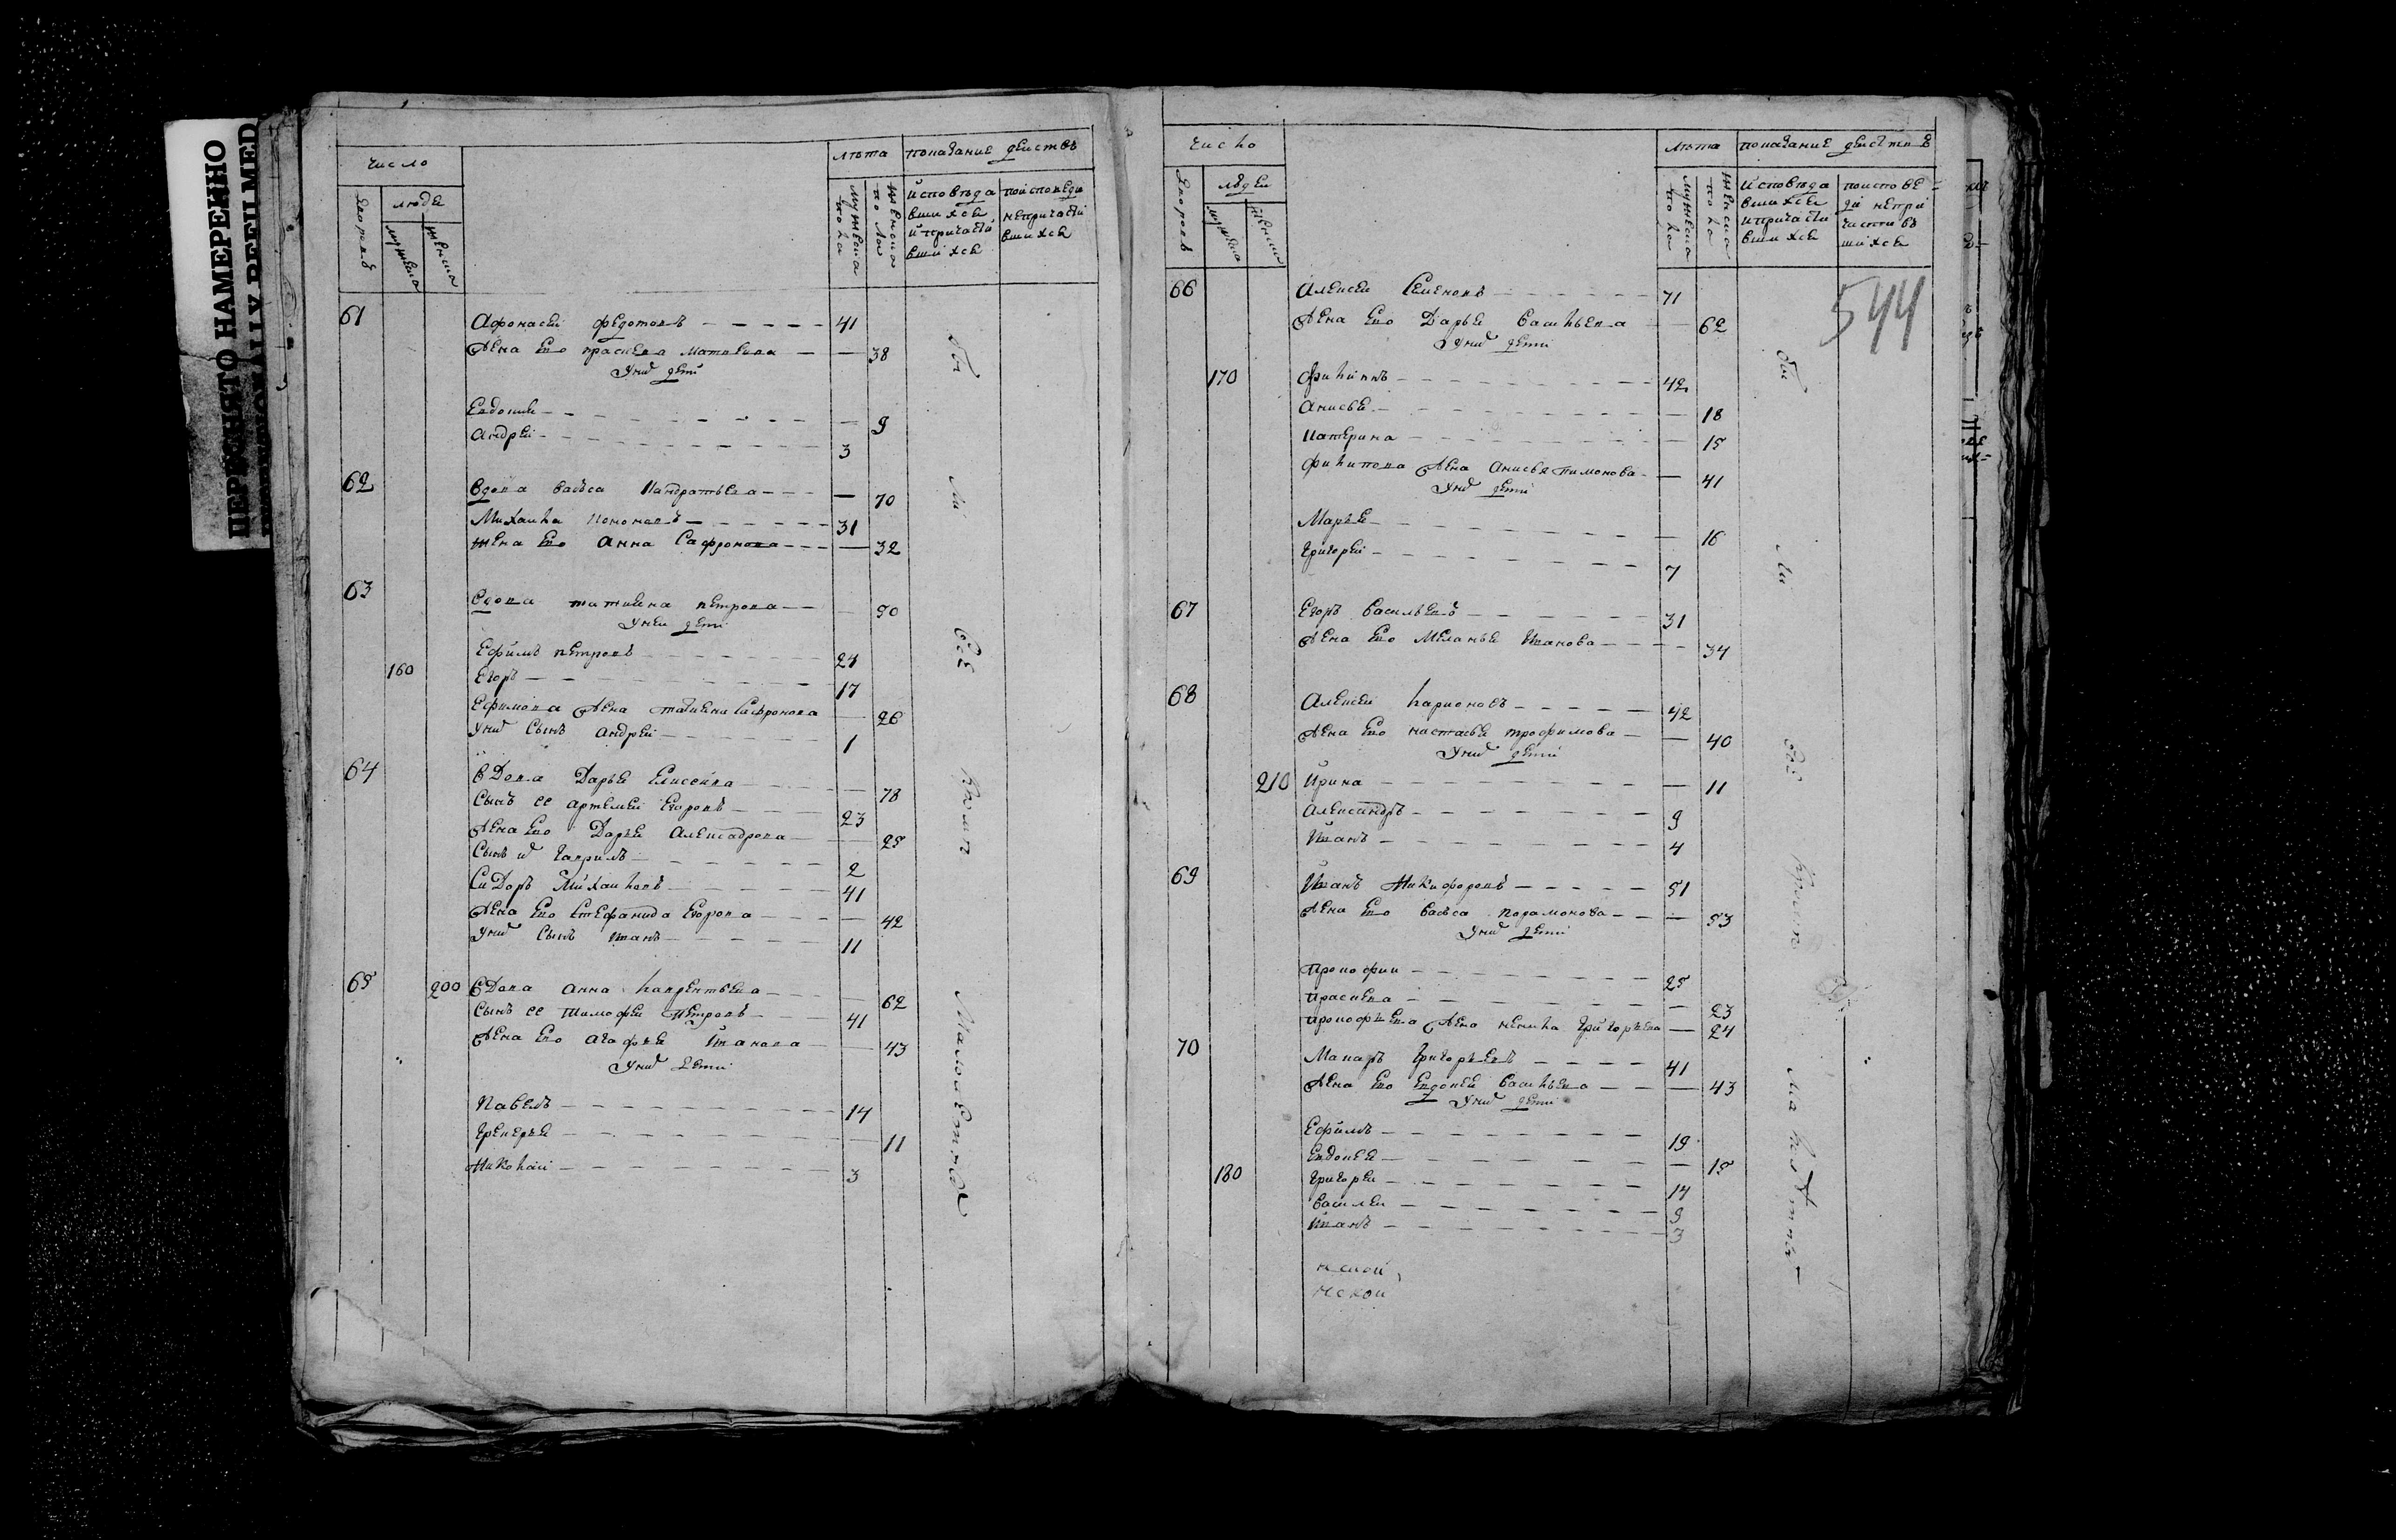 ПЕРЕСНЯТО НАМЕРЕННО
число
дворовъ
людеи
мужеска
женска
лѣта
мужеска пола
женска пола
показание деиствъ
исповѣда
вшихся
и причасти
вшихся
по исповеди
непричасти
вшихся
61
Афонасеи федотовъ 41
Жена Ево праскева Матвеева 38
У них дети
Евдокия 9
Андреи 3
62
Вдова Васѣса Кандратьева 70
Михаила Кононовъ 31
жена Ево Анна Сафронова 32
63
Вдова татиена петрова 50
У неи дети
Ефимъ петровъ 24
160 Егоръ 17
Ефимова Жена татиена Сафронова 26
У них Сынъ Андреи 1
64
Вдова Дарья Елисеива 78
Сынъ ее артемеи Егоровъ 23
Жена Ево Дарья Алексадрова 25
Сынъ их Гаврилъ 2
Сидоръ Михаиловъ 41
Жена Ево Стефанида Егорова 42
У них Сынъ иванъ 11
65 200
Вдова анна лаврентьева 62
Сынъ ее тимофеи петровъ 41
Жена Ево агафья иванова 43
У них дети
Павелъ 14
11
Николаи 3
бы
ли
Всѣ
кроме
малолетных
число
дворовъ
людеи
мужеска
женска
лѣта
мужеска пола
женска пола
показание деиствъ
исповѣда
вшихся
и причасти
вшихся
по испове
ди непри
частивъ
шихся
544
66
Алексеи Семеновъ 71
Жена Ево Дарья Васильева 62
У них дети
170 филиппъ 42
Анисья 18
Катерина 15
филипова Жена Анисья тимонова 41
У них дети
Марья 16
Григореи 7
67
Егоръ Васильевъ 31
Жена Ево Меланья Иванова 34
68
Алексеи ларионовъ 42
Жена Ево настасья трофимова 40
У них дети
210 Ирина 11
Александръ 9
Иванъ 4
69
Иванъ Никифоровъ 51
Жена Ево Васѣса Парамонова 53
У них дети
Прокофии 25
праскева 23
прокофьева Жена ненила Григорьева 24
70
Макаръ Григорьевъ 41
Жена Ево Евдокея Васильева 43
У них дети
Ефимъ 19
Евдокея 15
180 Григореи 14
Василеи 9
Иванъ 3
бы
ли
всѣ
кроме
малѣтныхъ